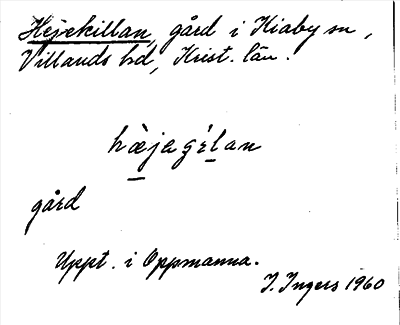 Hejekillan, gård i Kiaby sn,
Villands hd, Krist. län.
hæ̀jagílan
gård
Uppt. i Oppmanna.
I. Ingers 1960